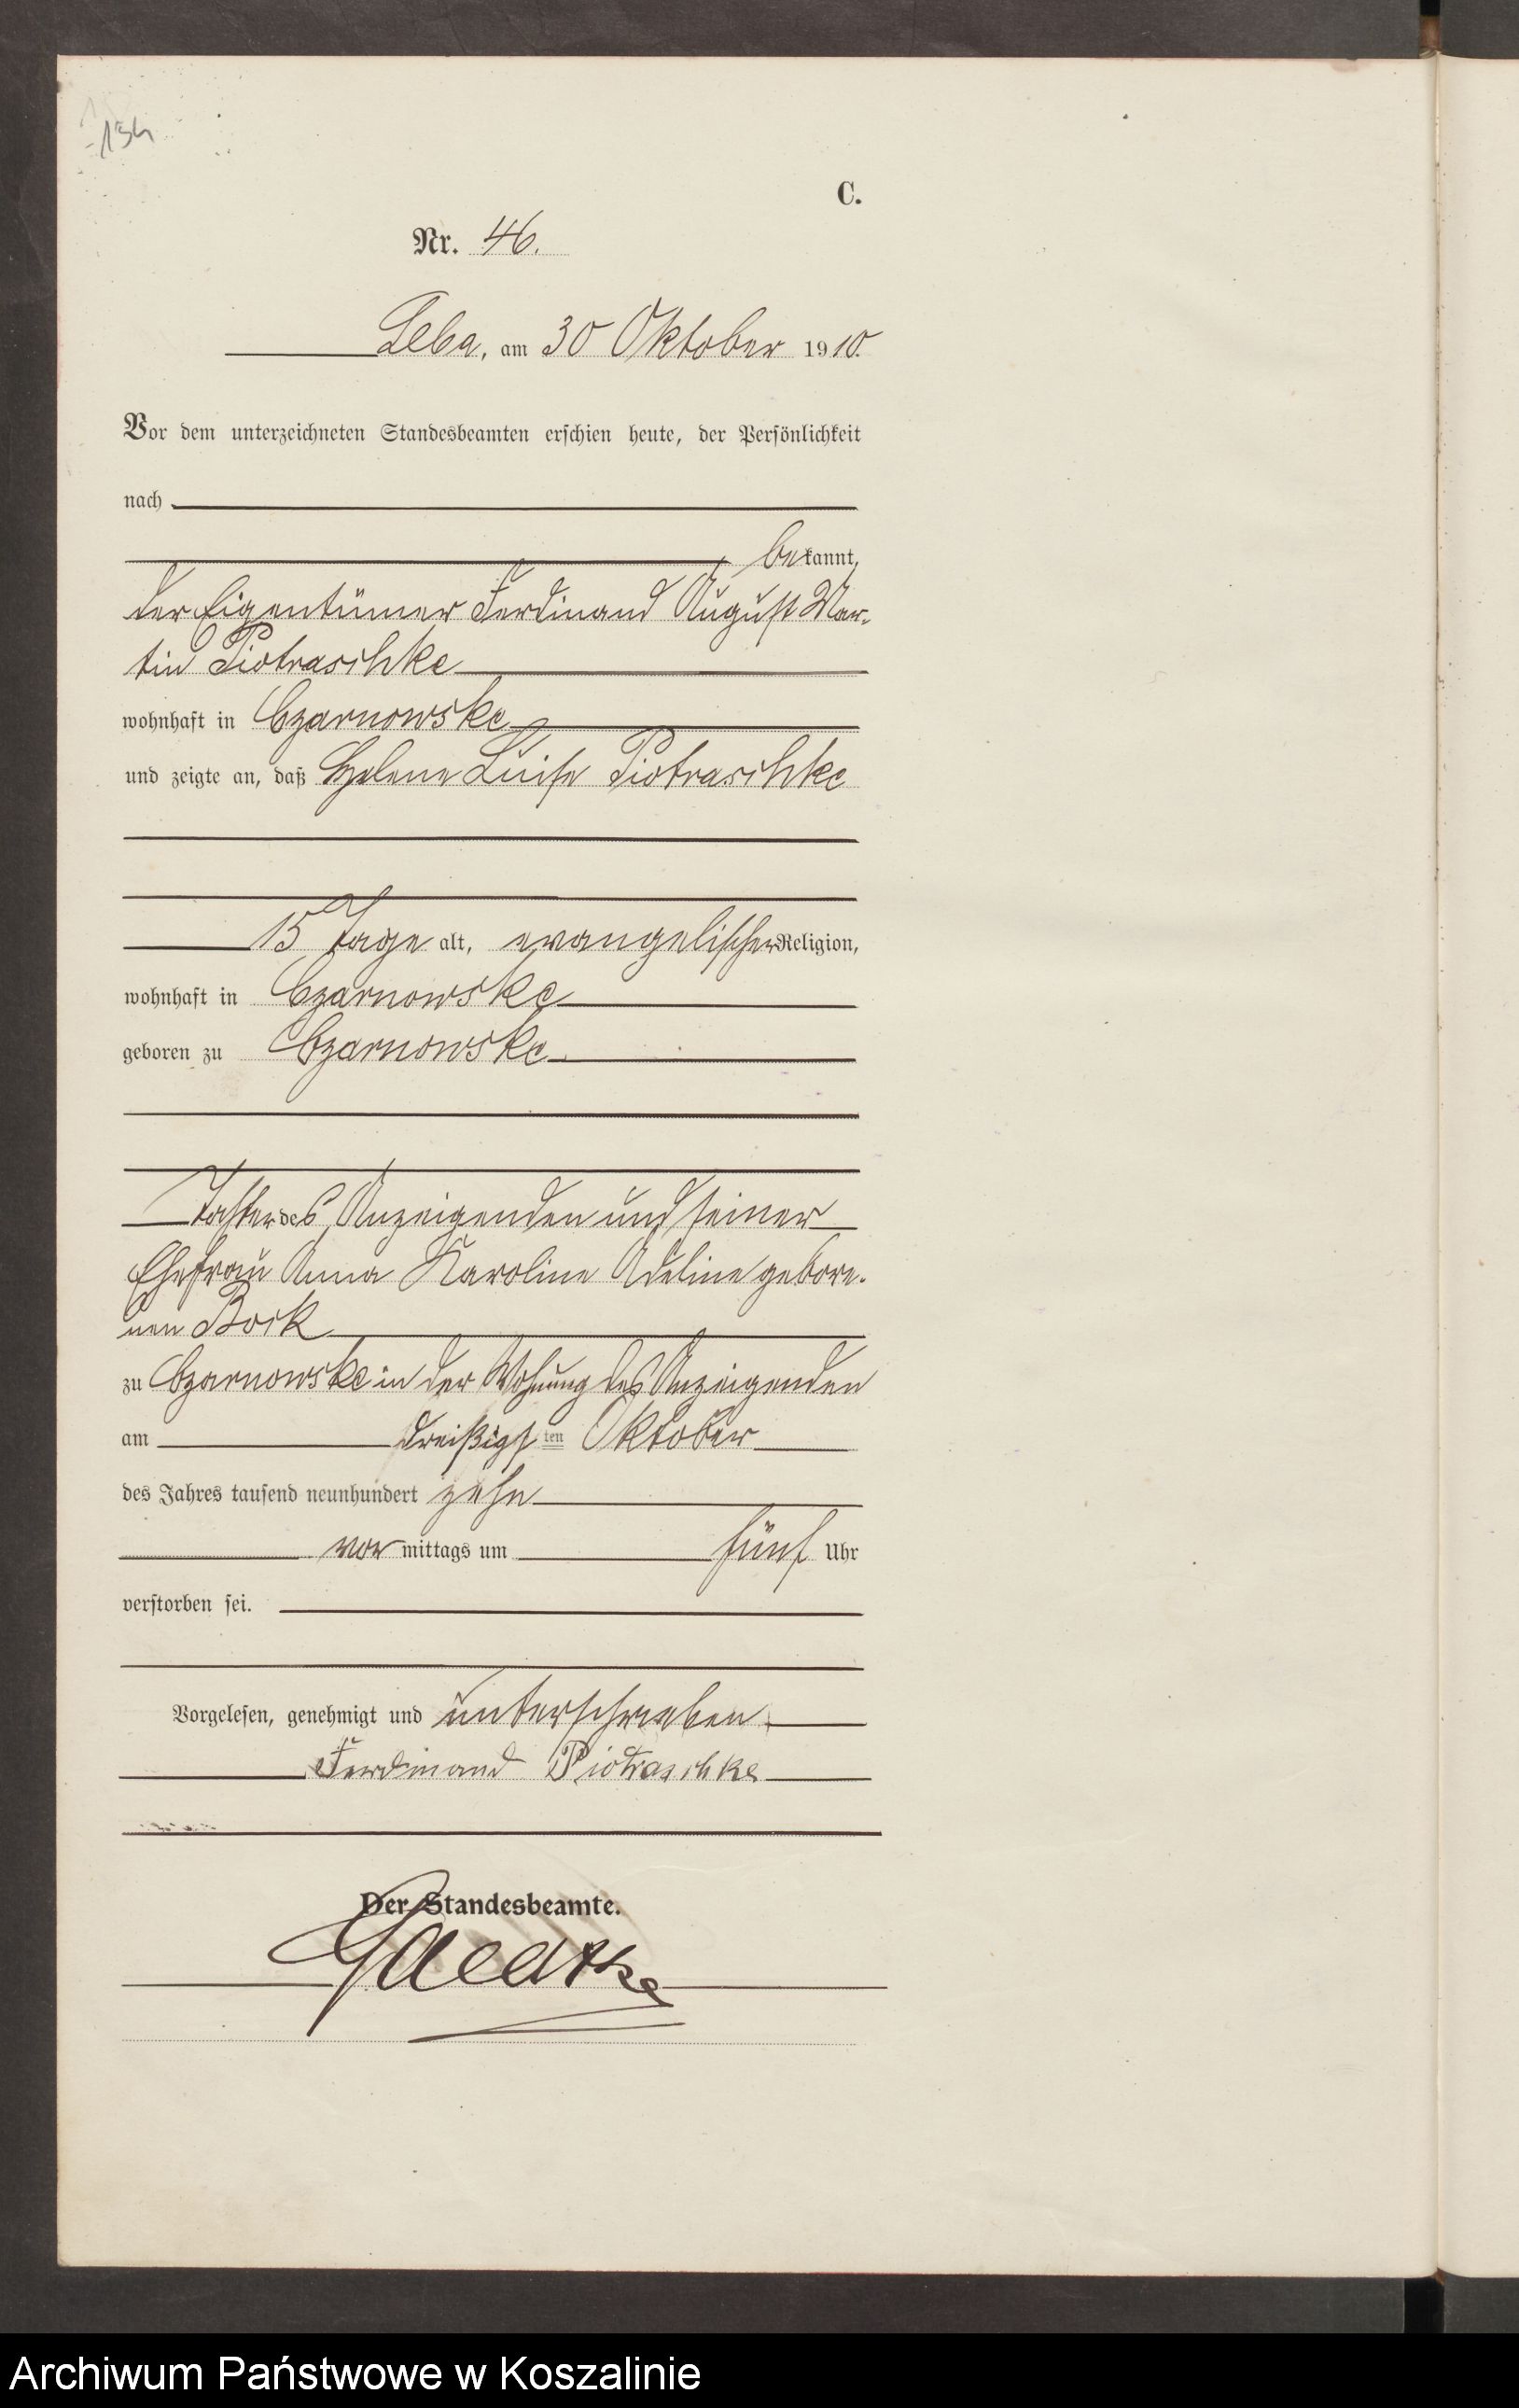 134
C.
Nr. 46.
Leba, am 30 Oktober 1910.
Vor dem unterzeichneten Standesbeamten erschien heute, der Persönlichkeit
nach
bekannt,
der Eigentümer Ferdinand August Mar-
tin Piotraschke
wohnhaft in Czarnowske
und zeigte an, daß Helene Luise Piotraschke
15 Tage alt, evangelischer Religion,
wohnhaft in Czarnowske
geboren zu Czarnowske
Tochter des Anzeigenden und seiner
Ehefrau Anna Karoline Adeline gebore-
nen Bock
zu Czarnowske in der Wohnung des Anzeigenden
am dreißigsten Oktober
des Jahres tausend neunhundert zehn
vor mittags um fünf Uhr
verstorben sei.
Vorgelesen, genehmigt und unterschrieben.
Ferdinand Piotraschke
Der Standesbeamte.
Archiwum Państwowe w Koszalinie